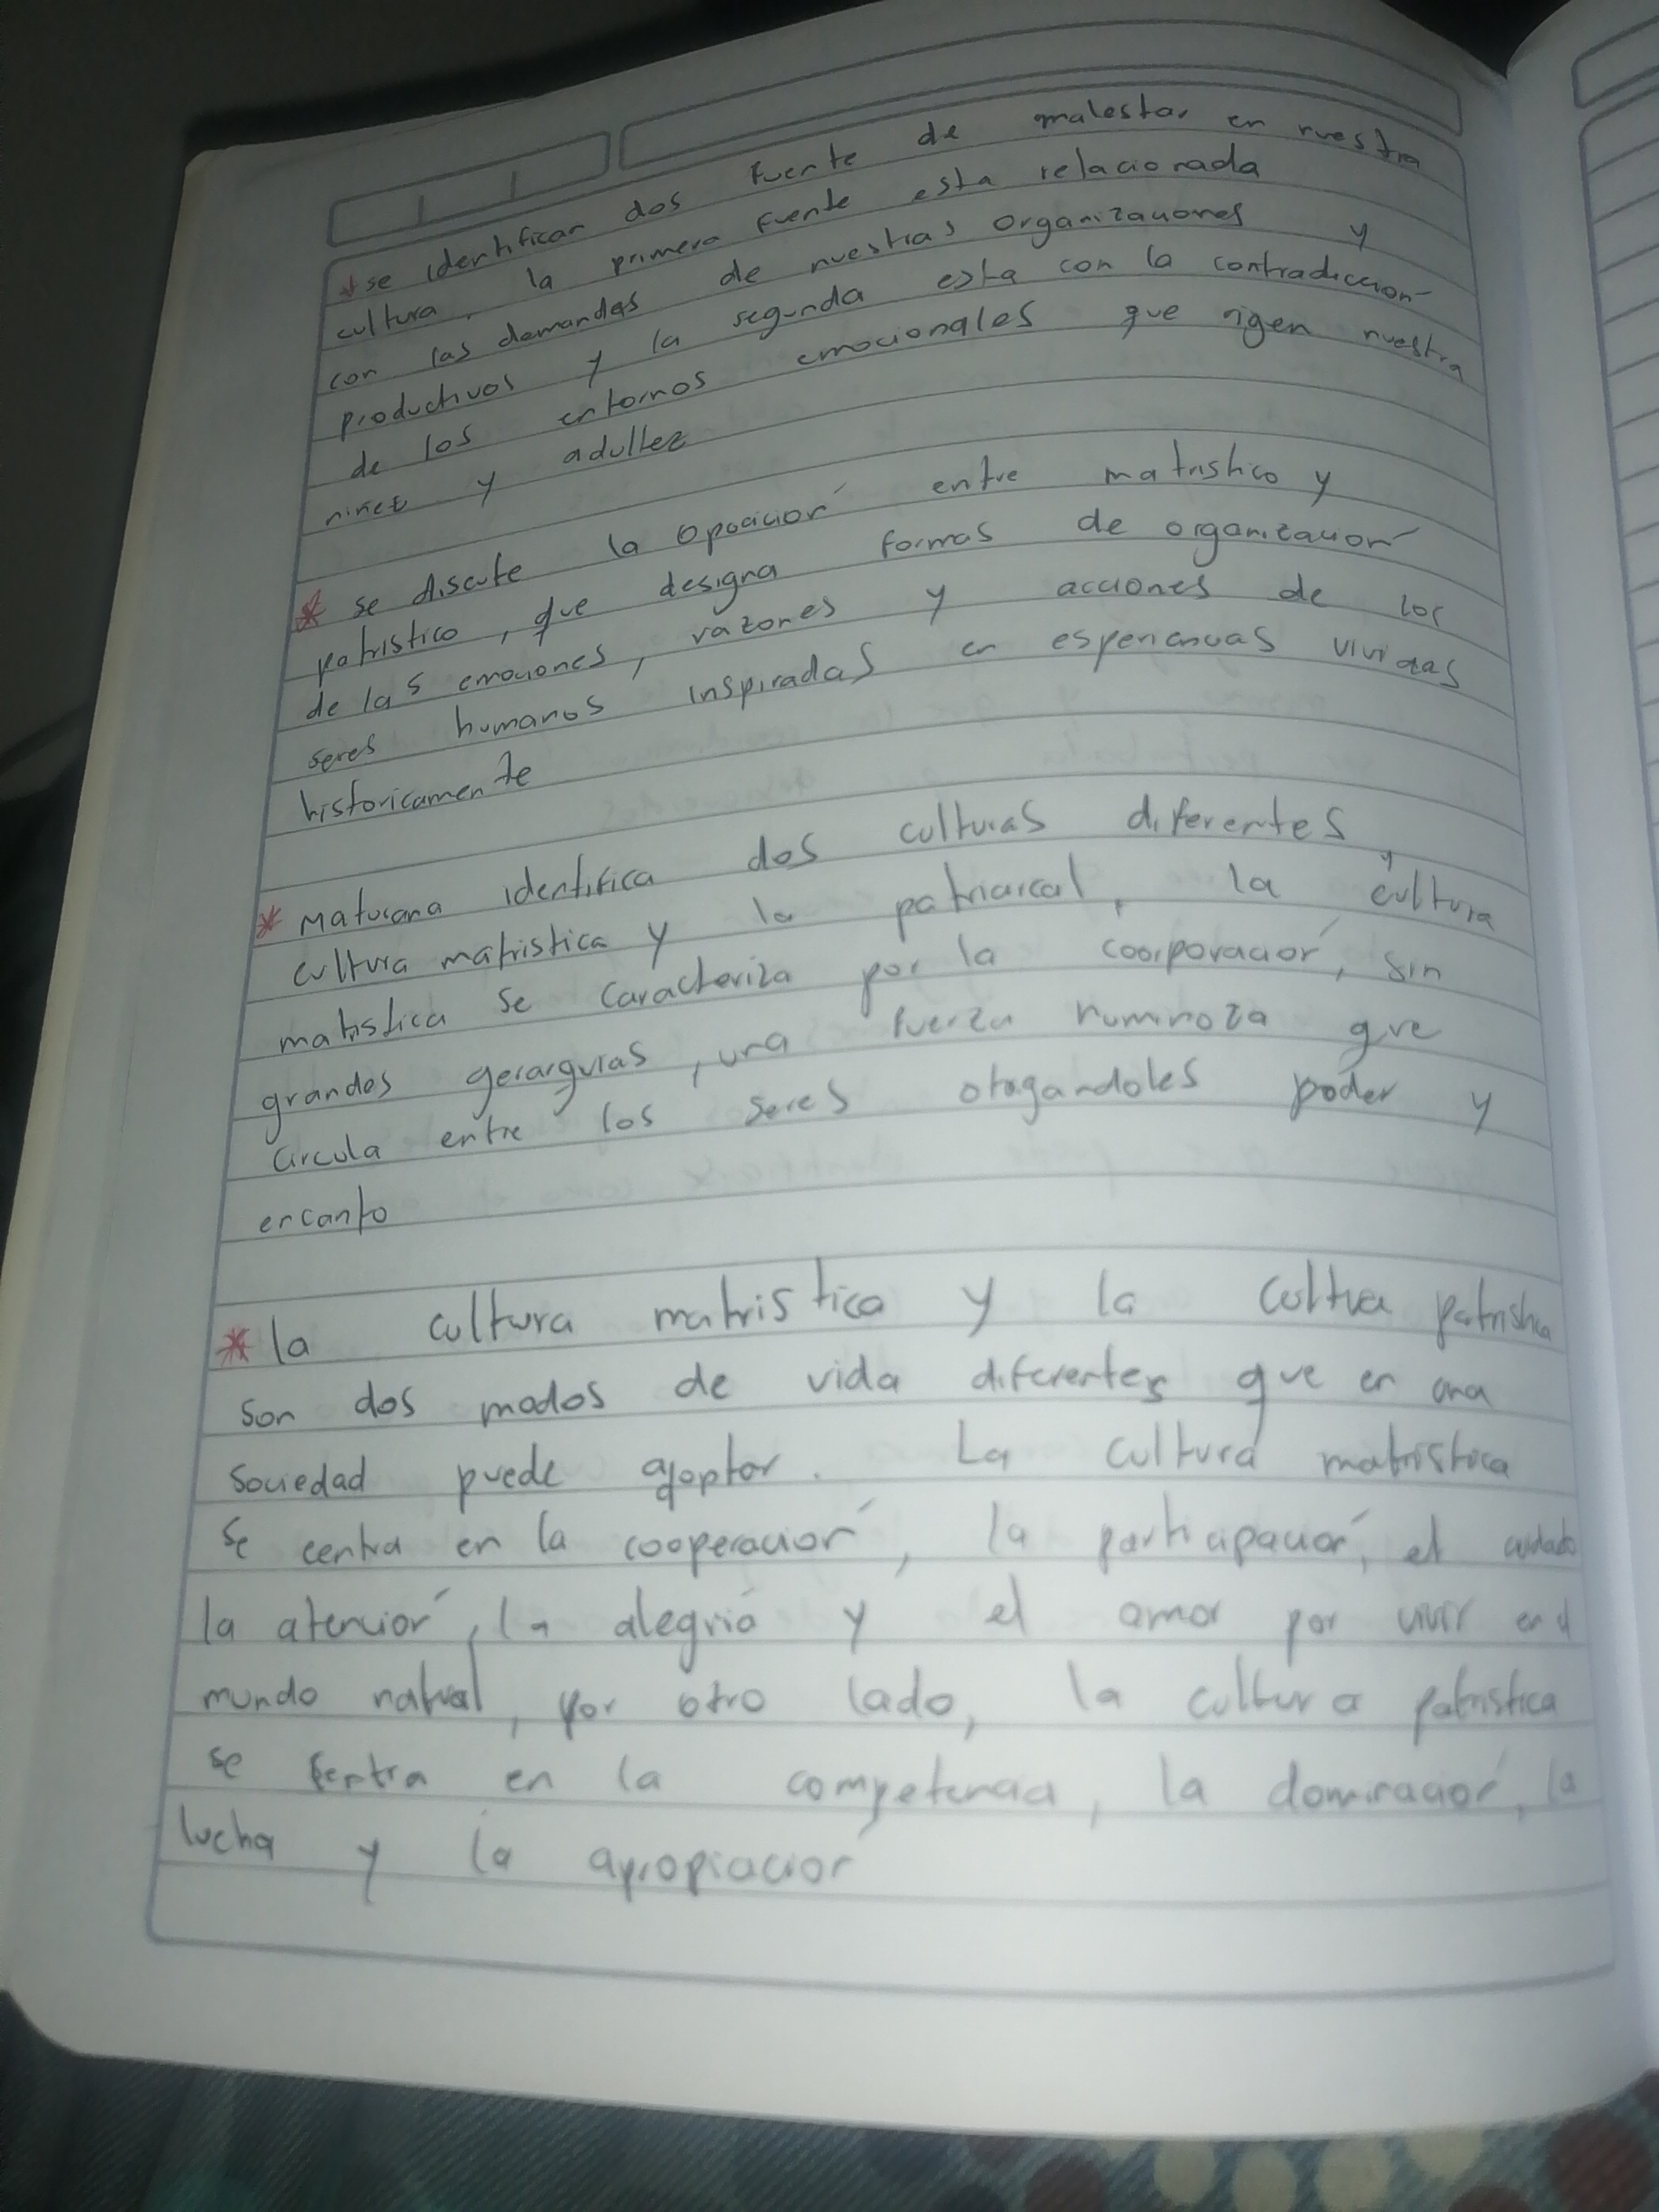 * se identifican dos fuente de malestar en nuestra
cultura, la primera fuente esta relacionada
con las demandas de nuestras organizaciones y
productivos y la segunda esta con la contradiccion
de los entornos emocionales que rigen nuestra
niñez y adultez
* se discute la oposición entre matristico y
patristico, que designa formas de organización
de las emociones, razones y acciones de los
seres humanos inspiradas en esperiencias vividas
historicamente
* Maturana identifica dos culturas diferentes,
cultura matristica y la patriarcal, y la cultura
matristica se caracteriza por la coorporación, sin
grandes gerarquias, una fuerza numinoza que
circula entre los seres otogandoles poder y
encanto
* la cultura matristica y la cultura patristica
son dos modos de vida diferentes que en una
sociedad puede adoptar. La cultura matristica
se centra en la cooperación, la participación, el cuidado
la atención, la alegria y el amor por vivir en el
mundo natural, por otro lado, la cultura patristica
se centra en la competencia, la dominación, la
lucha y la apropiación